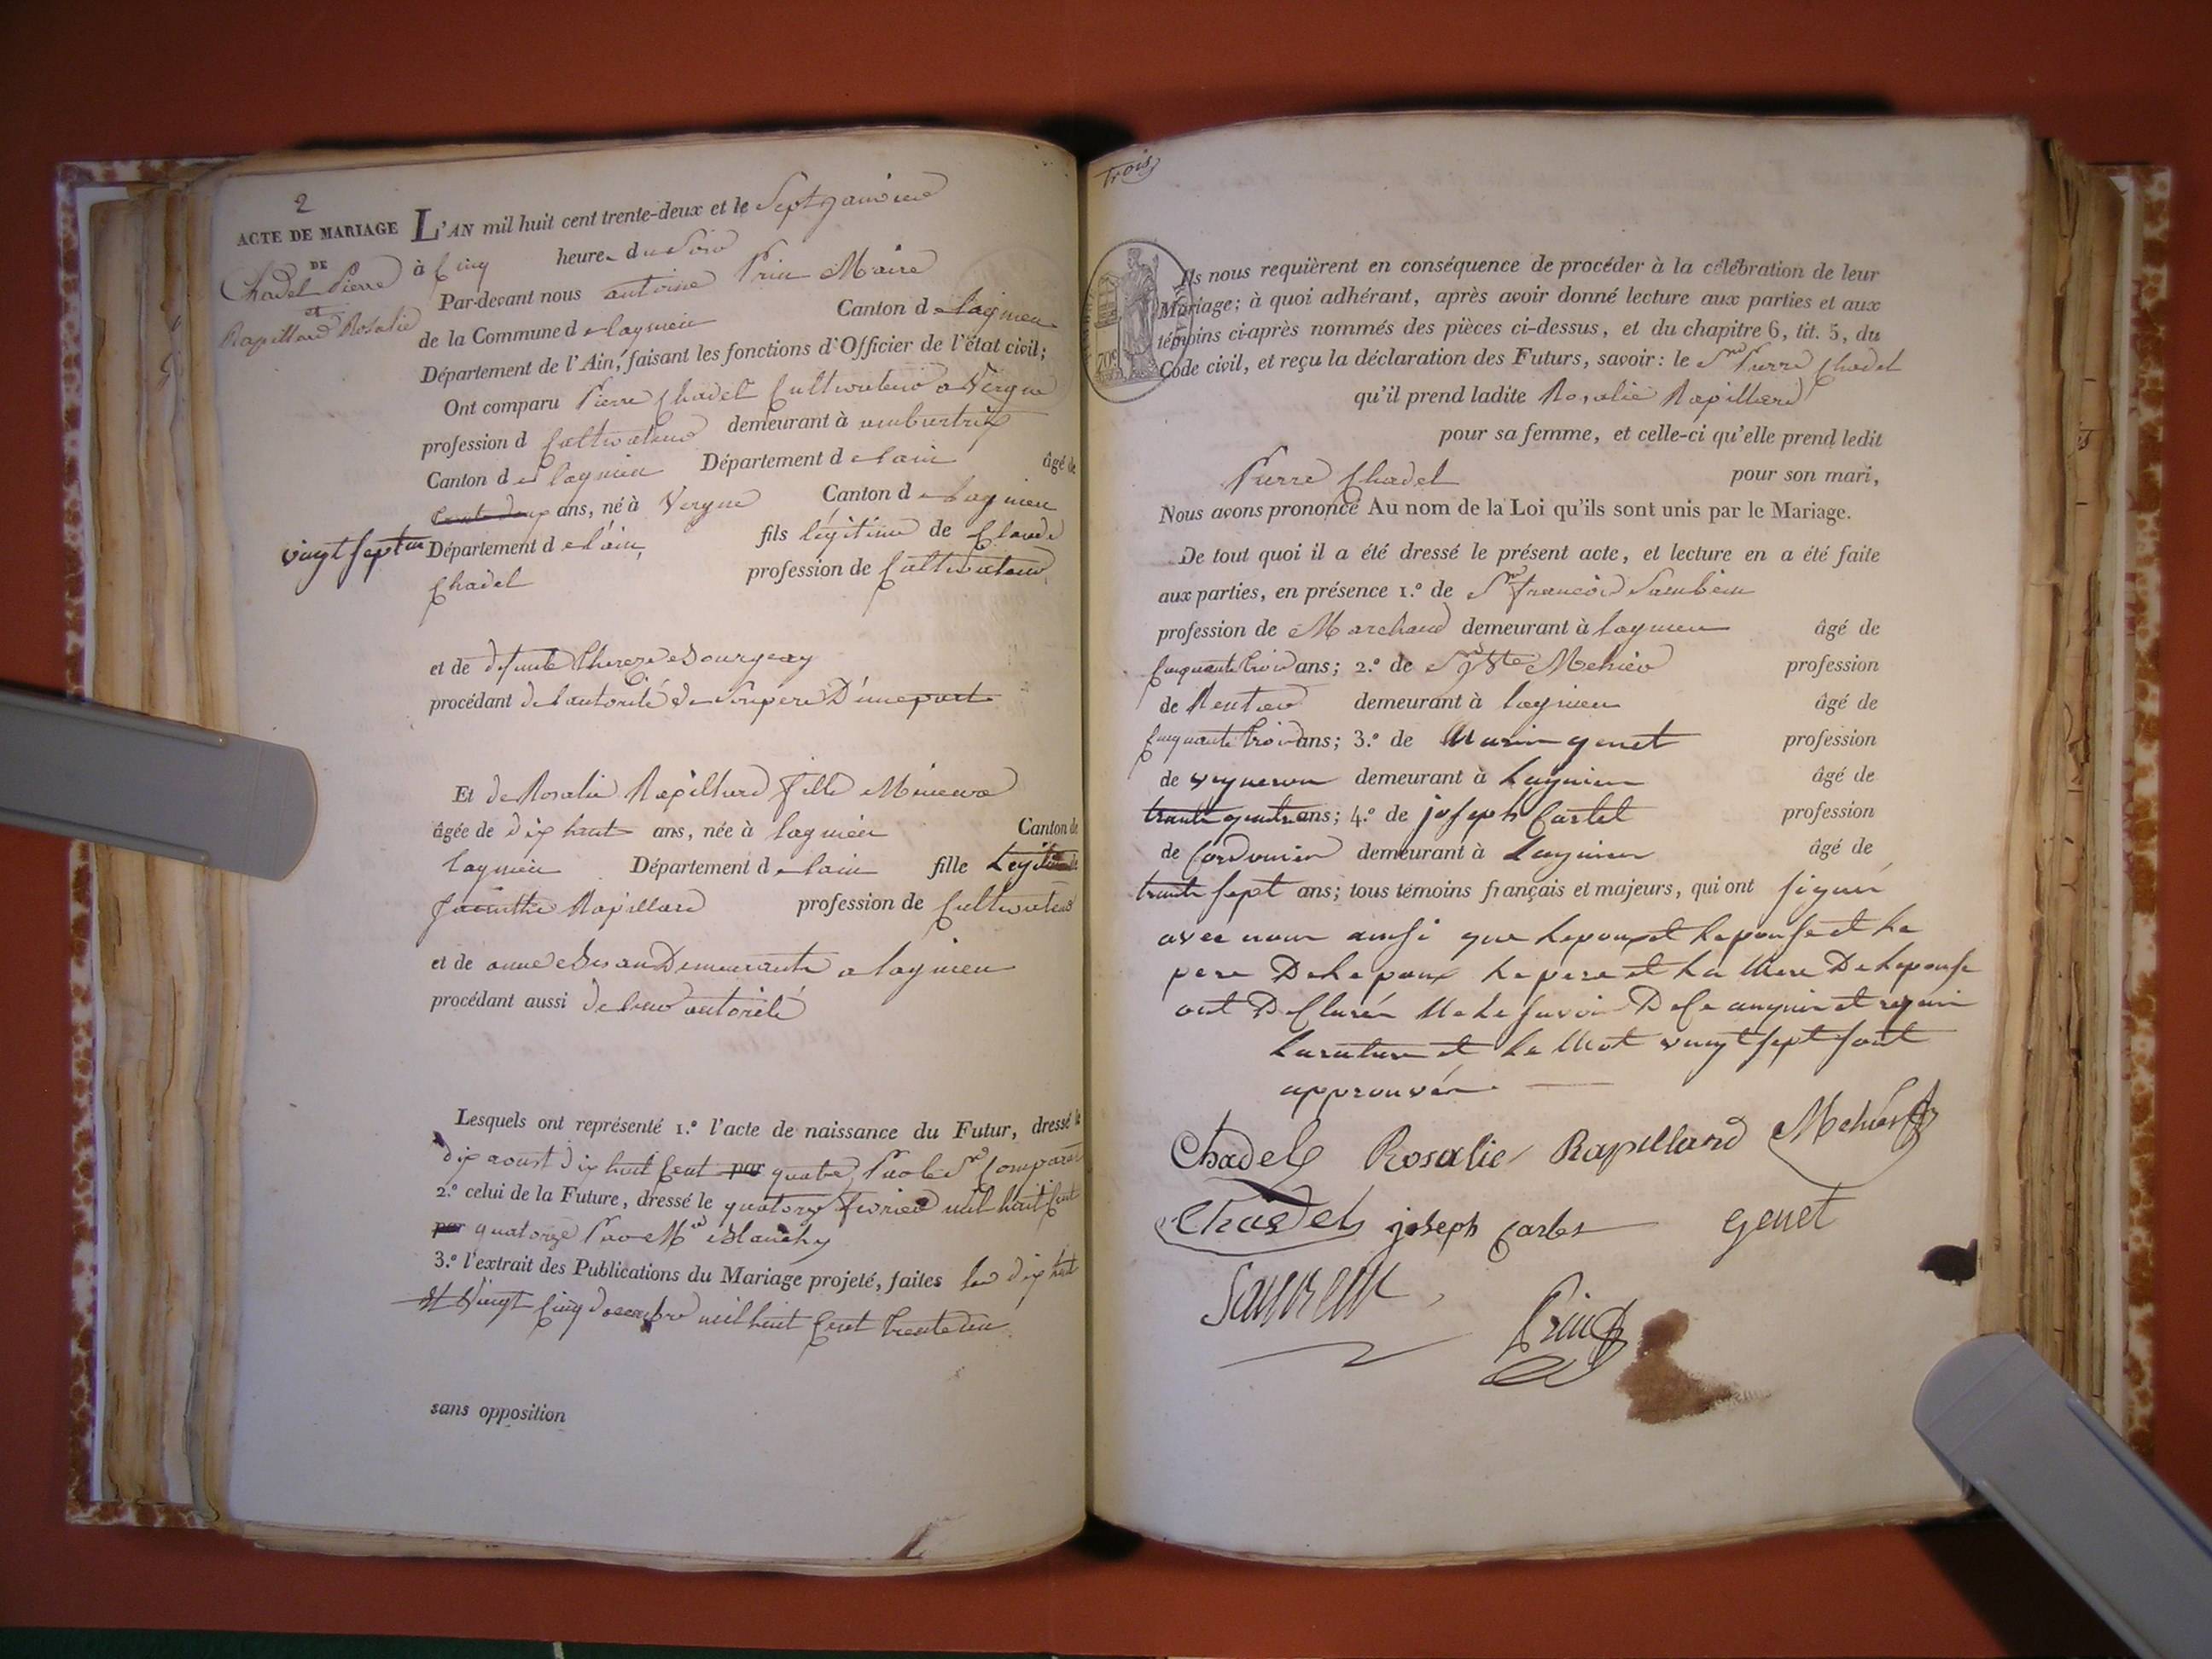 2
ACTE DE MARIAGE
DE
Chadel Pierre
et
Rapillard Rosalie
L'AN mil huit cent trente-deux et le Sept janvier
à Cinq heures du Soir
Par-devant nous antoine Prin Maire
de la Commune de lagnieu Canton de lagnieu
Département de l'Ain, faisant les fonctions d'Officier de l'état civil;
Ont comparu Pierre Chadel Cultivateur a Vergne
profession de Cultivateur demeurant à ambutrix
Canton de lagnieu Département de lain âgé de
ans, né à Vergne Canton de lagnieu
vingt sept ans
Département de lain, fils légitime de Claude
Chadel profession de Cultivateur
et de defunte Thereze Bourgeay
procédant de lautorité de Son père D'une part
Et de Rosalie Rapillard fille Mineure
âgée de dix huit ans, née à lagnieu Canton de
lagnieu Département de lain fille Legitime de
Jacinthe Rapillard profession de Cultivateur
et de anne Demeurante a lagnieu
procédant aussi de leur autorité
Lesquels ont représenté 1.º l'acte de naissance du Futur, dressé le
dix aoust dix huit Cent par quatre Par le Sr Comparat
2.º celui de la Future, dressé le quatorze fevrier mil huit Cent
par quatorze Par Mr Blanchy
3.º l'extrait des Publications du Mariage projeté, faites les dix huit
et Vingt Cinq decembre mil huit Cent trente un
sans opposition
Trois
70c
Ils nous requièrent en conséquence de procéder à la célébration de leur
Mariage; à quoi adhérant, après avoir donné lecture aux parties et aux
témoins ci-après nommés des pièces ci-dessus, et du chapitre 6, tit. 5, du
Code civil, et reçu la déclaration des Futurs, savoir: le Sr Pierre Chadel
qu'il prend ladite Rosalie Rapillard
pour sa femme, et celle-ci qu'elle prend ledit
Pierre Chadel pour son mari,
Nous avons prononcé Au nom de la Loi qu'ils sont unis par le Mariage.
De tout quoi il a été dressé le présent acte, et lecture en a été faite
aux parties, en présence 1.º de Sr françois
profession de Marchand demeurant à lagnieu âgé de
Cinquante trois ans; 2.º de Sr Jn Bte Mehier profession
de Rentier demeurant à lagnieu âgé de
Cinquante trois ans; 3.º de Marin genet profession
de vigneron demeurant à Lagnieu âgé de
trante quatre ans; 4.º de joseph Carlet profession
de Cordonier demeurant à Lagnieu âgé de
trante sept ans; tous témoins français et majeurs, qui ont signés
avec nous ainsi que Lepoux et Lepouse et Le
pere De Lepoux Le pere et La Mere De Lepouse
ont Desclarés Ne Le savoir De Ce anquis et requis
La rature et Le Mot vingt sept sont
approuvés
Chadel Rosalie Rapillard Mehier
Chadel joseph Carlet genet
Prin